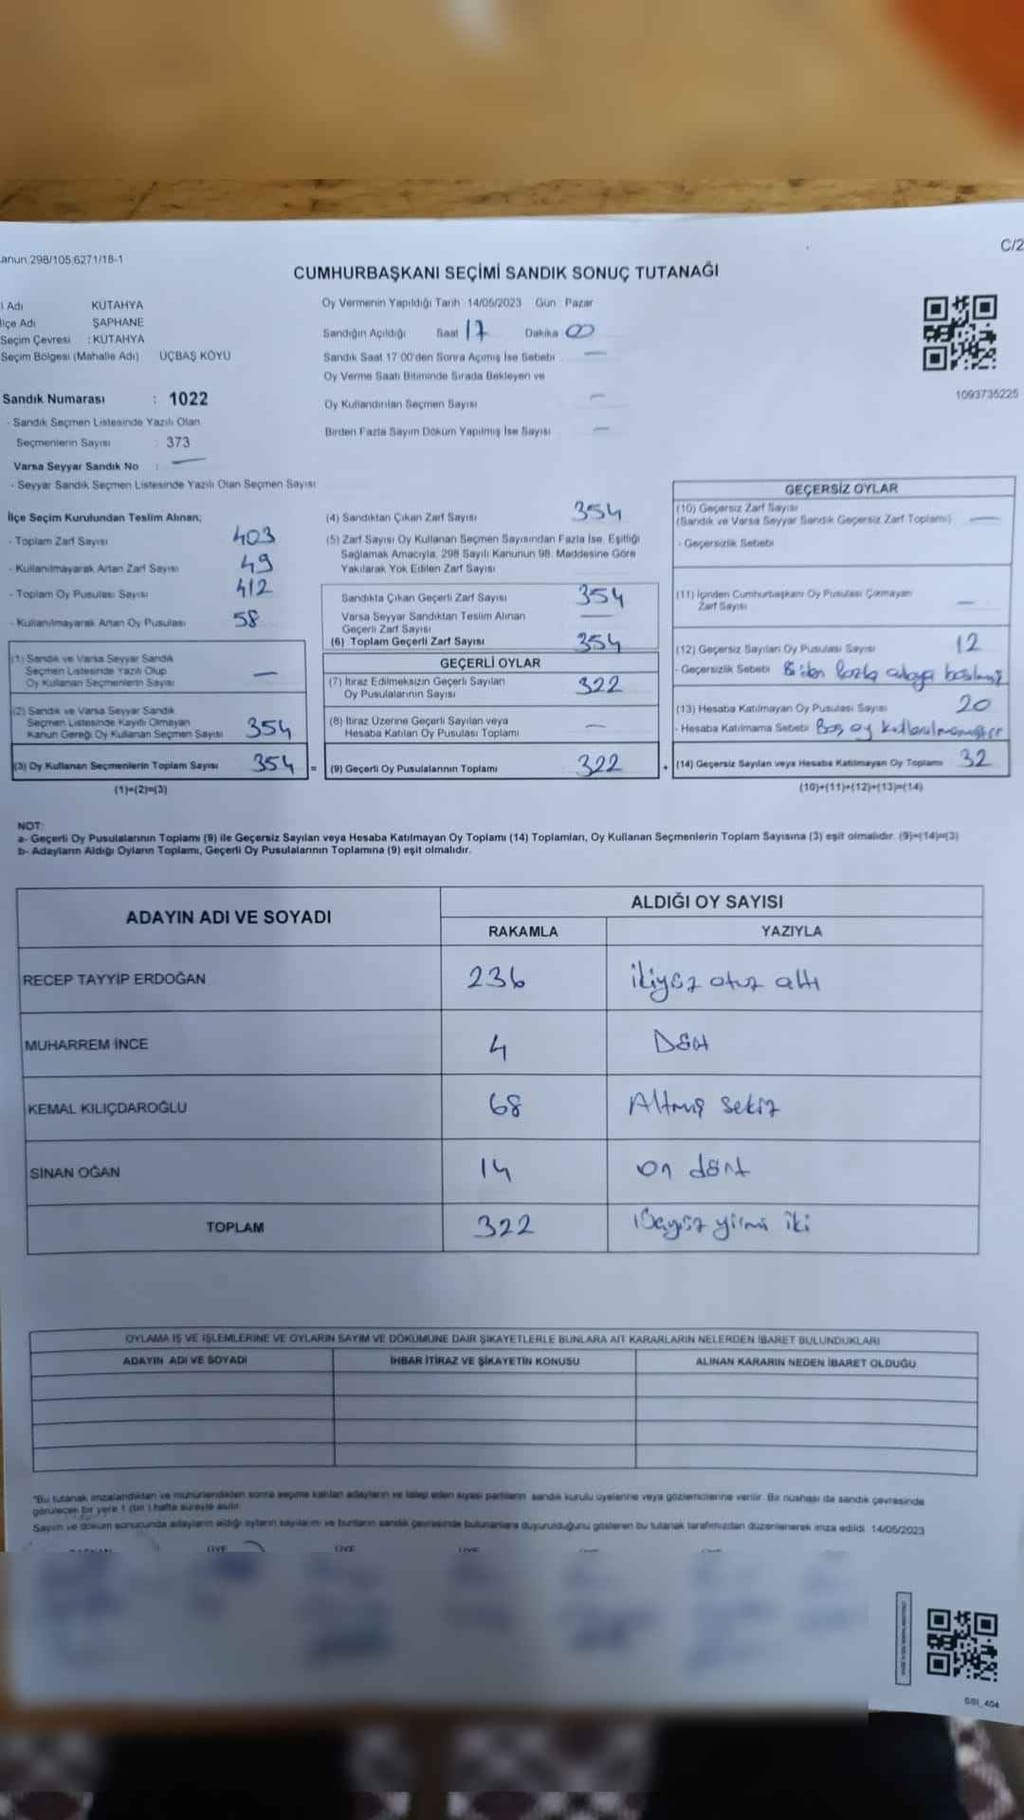 anun 298/105,6271/18-1
C/2
CUMHURBAŞKANI SEÇİMİ SANDIK SONUÇ TUTANAĞI
l Adı KÜTAHYA
lçe Adı ŞAPHANE
Seçim Çevresi : KÜTAHYA
Seçim Bölgesi (Mahalle Adı) ÜÇBAŞ KÖYÜ
Sandık Numarası : 1022
- Sandık Seçmen Listesinde Yazılı Olan
Seçmenlerin Sayısı : 373
Varsa Seyyar Sandık No : —
- Seyyar Sandık Seçmen Listesinde Yazılı Olan Seçmen Sayısı
Oy Vermenin Yapıldığı Tarih :14/05/2023 Gün : Pazar
Sandığın Açıldığı Saat 17 Dakika 00
Sandık Saat 17:00'den Sonra Açımış İse Sebebi —
Oy Verme Saati Bitiminde Sırada Bekleyen ve
Oy Kullandırılan Seçmen Sayısı —
Birden Fazla Sayım Döküm Yapılmış İse Sayısı —
1093735225
İlçe Seçim Kurulundan Teslim Alınan;
- Toplam Zarf Sayısı 403
- Kullanılmayarak Artan Zarf Sayısı 49
- Toplam Oy Pusulası Sayısı 412
- Kullanılmayarak Artan Oy Pusulası 58
(1) Sandık ve Varsa Seyyar Sandık
Seçmen Listesinde Yazılı Olup
Oy Kullanan Seçmenlerin Sayısı —
(2) Sandık ve Varsa Seyyar Sandık
Seçmen Listesinde Kayıtlı Olmayan
Kanun Gereği Oy Kullanan Seçmen Sayısı 354
(3) Oy Kullanan Seçmenlerin Toplam Sayısı 354 =
(1)+(2)=(3)
(4) Sandıktan Çıkan Zarf Sayısı 354
(5) Zarf Sayısı Oy Kullanan Seçmen Sayısından Fazla İse, Eşitliği
Sağlamak Amacıyla, 298 Sayılı Kanunun 98. Maddesine Göre
Yakılarak Yok Edilen Zarf Sayısı
Sandıkta Çıkan Geçerli Zarf Sayısı 354
Varsa Seyyar Sandıktan Teslim Alınan
Geçerli Zarf Sayısı —
(6) Toplam Geçerli Zarf Sayısı 354
GEÇERLİ OYLAR
(7) İtiraz Edilmeksizin Geçerli Sayılan
Oy Pusulalarının Sayısı 322
(8) İtiraz Üzerine Geçerli Sayılan veya
Hesaba Katılan Oy Pusulası Toplamı —
(9) Geçerli Oy Pusulalarının Toplamı 322 +
GEÇERSİZ OYLAR
(10) Geçersiz Zarf Sayısı
(Sandık ve Varsa Seyyar Sandık Geçersiz Zarf Toplamı) —
- Geçersizlik Sebebi
(11) İçinden Cumhurbaşkanı Oy Pusulası Çıkmayan
Zarf Sayısı —
(12) Geçersiz Sayılan Oy Pusulası Sayısı 12
- Geçersizlik Sebebi Birden fazla adaya basılmış
(13) Hesaba Katılmayan Oy Pusulası Sayısı 20
- Hesaba Katılmama Sebebi Boş oy kullanılmamıştır
(14) Geçersiz Sayılan veya Hesaba Katılmayan Oy Toplamı 32
(10)+(11)+(12)+(13)=(14)
NOT:
a- Geçerli Oy Pusulalarının Toplamı (9) ile Geçersiz Sayılan veya Hesaba Katılmayan Oy Toplamı (14) Toplamları, Oy Kullanan Seçmenlerin Toplam Sayısına (3) eşit olmalıdır. (9)+(14)=(3)
b- Adayların Aldığı Oyların Toplamı, Geçerli Oy Pusulalarının Toplamına (9) eşit olmalıdır.
ADAYIN ADI VE SOYADI
ALDIĞI OY SAYISI
RAKAMLA YAZIYLA
RECEP TAYYİP ERDOĞAN 236 ikiyüz otuz altı
MUHARREM İNCE 4 Dört
KEMAL KILIÇDAROĞLU 68 Altmış sekiz
SİNAN OĞAN 14 on dört
TOPLAM 322 üçyüz yirmi iki
OYLAMA İŞ VE İŞLEMLERİNE VE OYLARIN SAYIM VE DÖKÜMÜNE DAİR ŞİKAYETLERLE BUNLARA AİT KARARLARIN NELERDEN İBARET BULUNDUKLARI
ADAYIN ADI VE SOYADI İHBAR İTİRAZ VE ŞİKAYETİN KONUSU ALINAN KARARIN NEDEN İBARET OLDUĞU
"Bu tutanak imzalandıktan ve mühürlendikten sonra seçime katılan adayların ve talep eden siyasi partilerin sandık kurulu üyelerine veya gözlemcilerine verilir. Bir nüshası da sandık çevresinde
görülecek bir yere 1 (bir) hafta süreyle asılır.
Sayım ve döküm sonucunda adayların aldığı oyların sayılarını ve bunların sandık çevresinde bulunanlara duyurulduğunu gösteren bu tutanak tarafımızdan düzenlenerek imza edildi. 14/05/2023
SSI_404